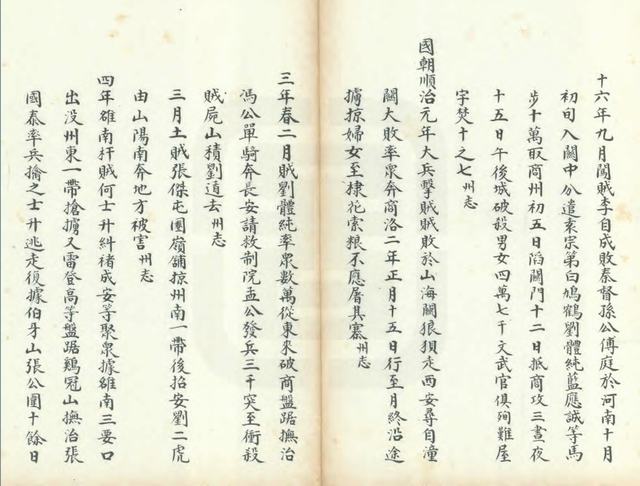 十六年九月闖賊李自成敗秦督孫公傅庭於河南十月
初旬入關中分遣袁宗第白鳩鶴劉體純藍應誠等馬
步十萬取商州初五日陷關門十二日抵商攻三晝夜
十五日午後城破殺男女四萬七千文武官俱殉難屋
宇焚十之七州志
國朝順治元年大兵擊賊賊敗於山海關狼狽走西安尋自潼
關大敗率眾奔商洛二年正月十五日行至月終沿途
擄掠婦女至棣花索粮不應屠其寨州志
三年春二月賊劉體純率眾數萬從東來破商盤踞撫治
馮公單騎奔長安請救制院孟公發兵三千突至衝殺
賊屍山積劉遁去州志
三月土賊張傑屯圍嶺舖掠州南一帶後招安劉二虎
由山陽南奔地方被害州志
四年雒南犴賊何士升糾褚成安等聚眾據雒南三要口
出没州東一帶搶擄又雷登高等盤踞鷄冠山撫治張
國泰率兵擒之士升逃走復據伯牙山張公圍十餘日